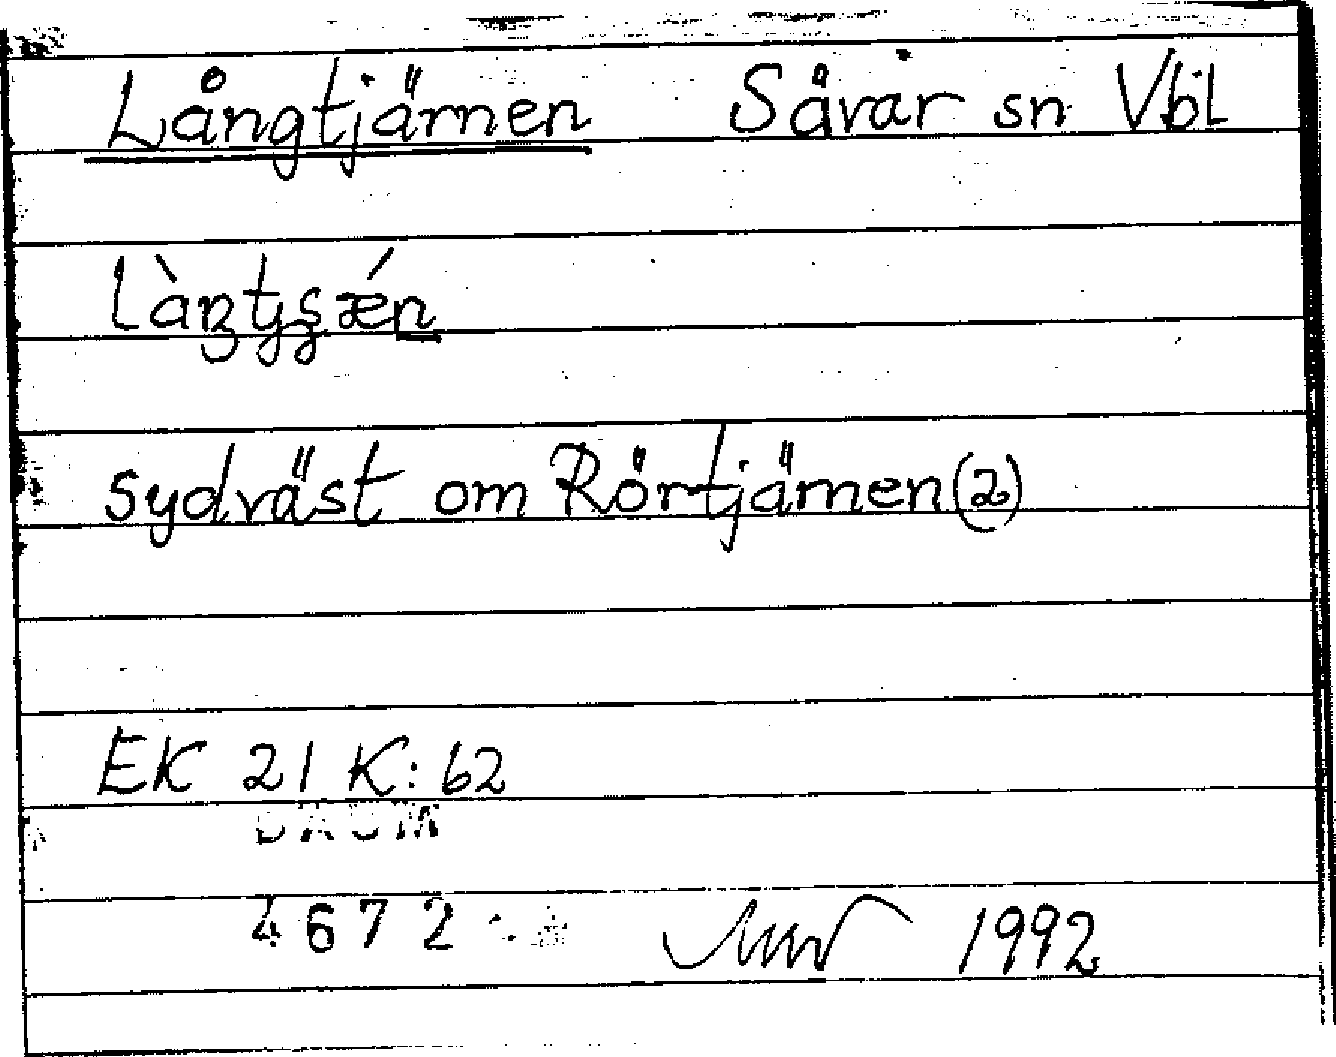 Långtjärnen Sävar sn Vbl
sydväst om Rörtjärnen (2)
EK 21 K: 62
DAUM
4672
1992